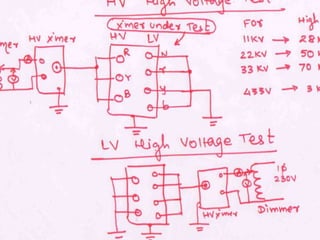 HV High Voltage Test
x'mer under Test
For High
HV x'mer HV LV
R Y B
n r y b
11KV → 28
22KV → 50
33KV → 70
433V → 3
LV High Voltage Test
1φ
230V
HV x'mer Dimmer